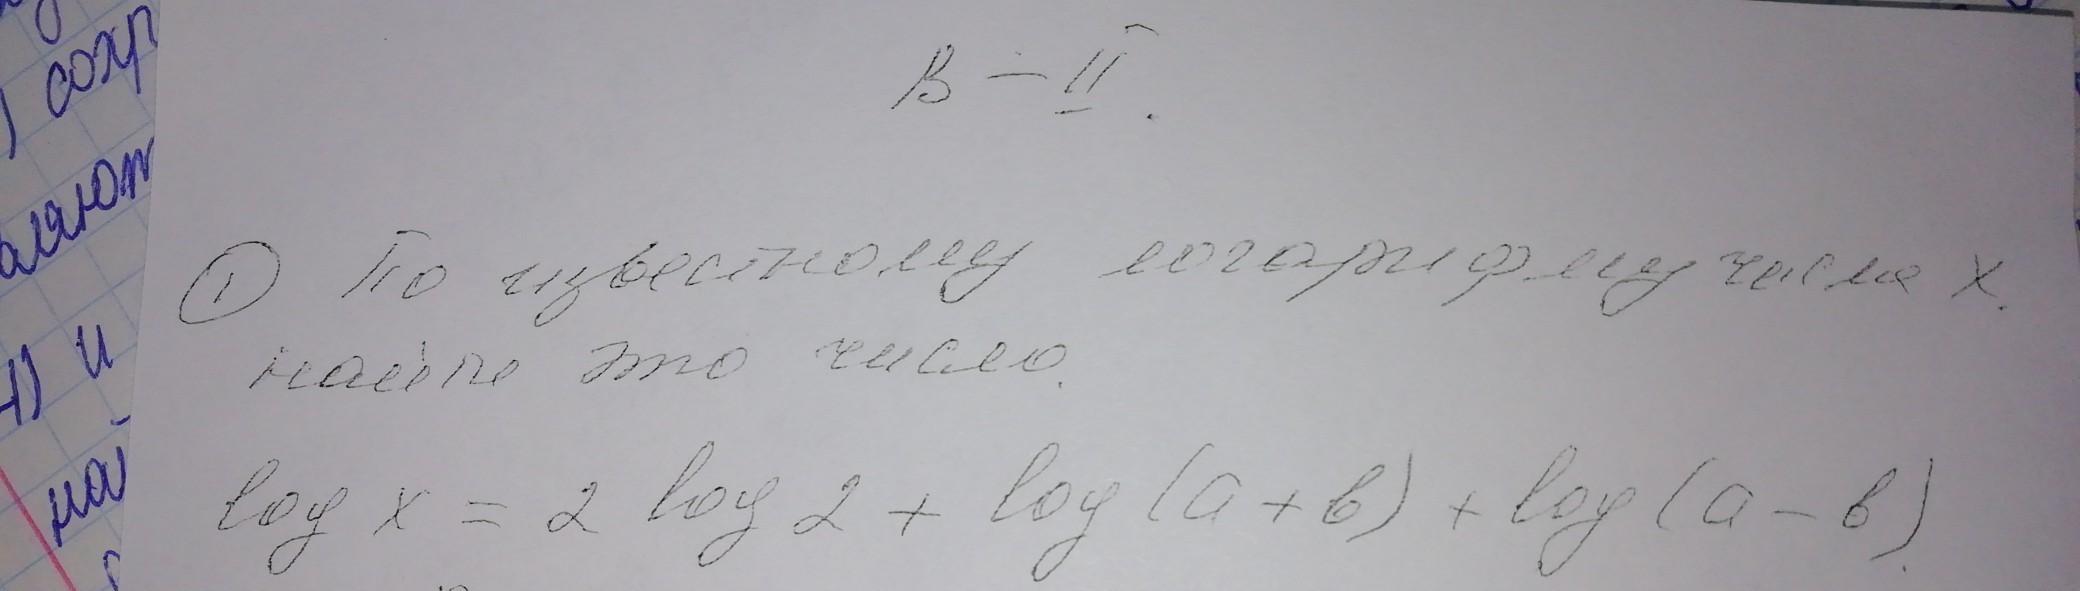 ) сохр
аляют
1) и
най
В – II.
① По известному логарифму числа x.
найти это число.
log x = 2 log 2 + log (a + b) + log (a – b).